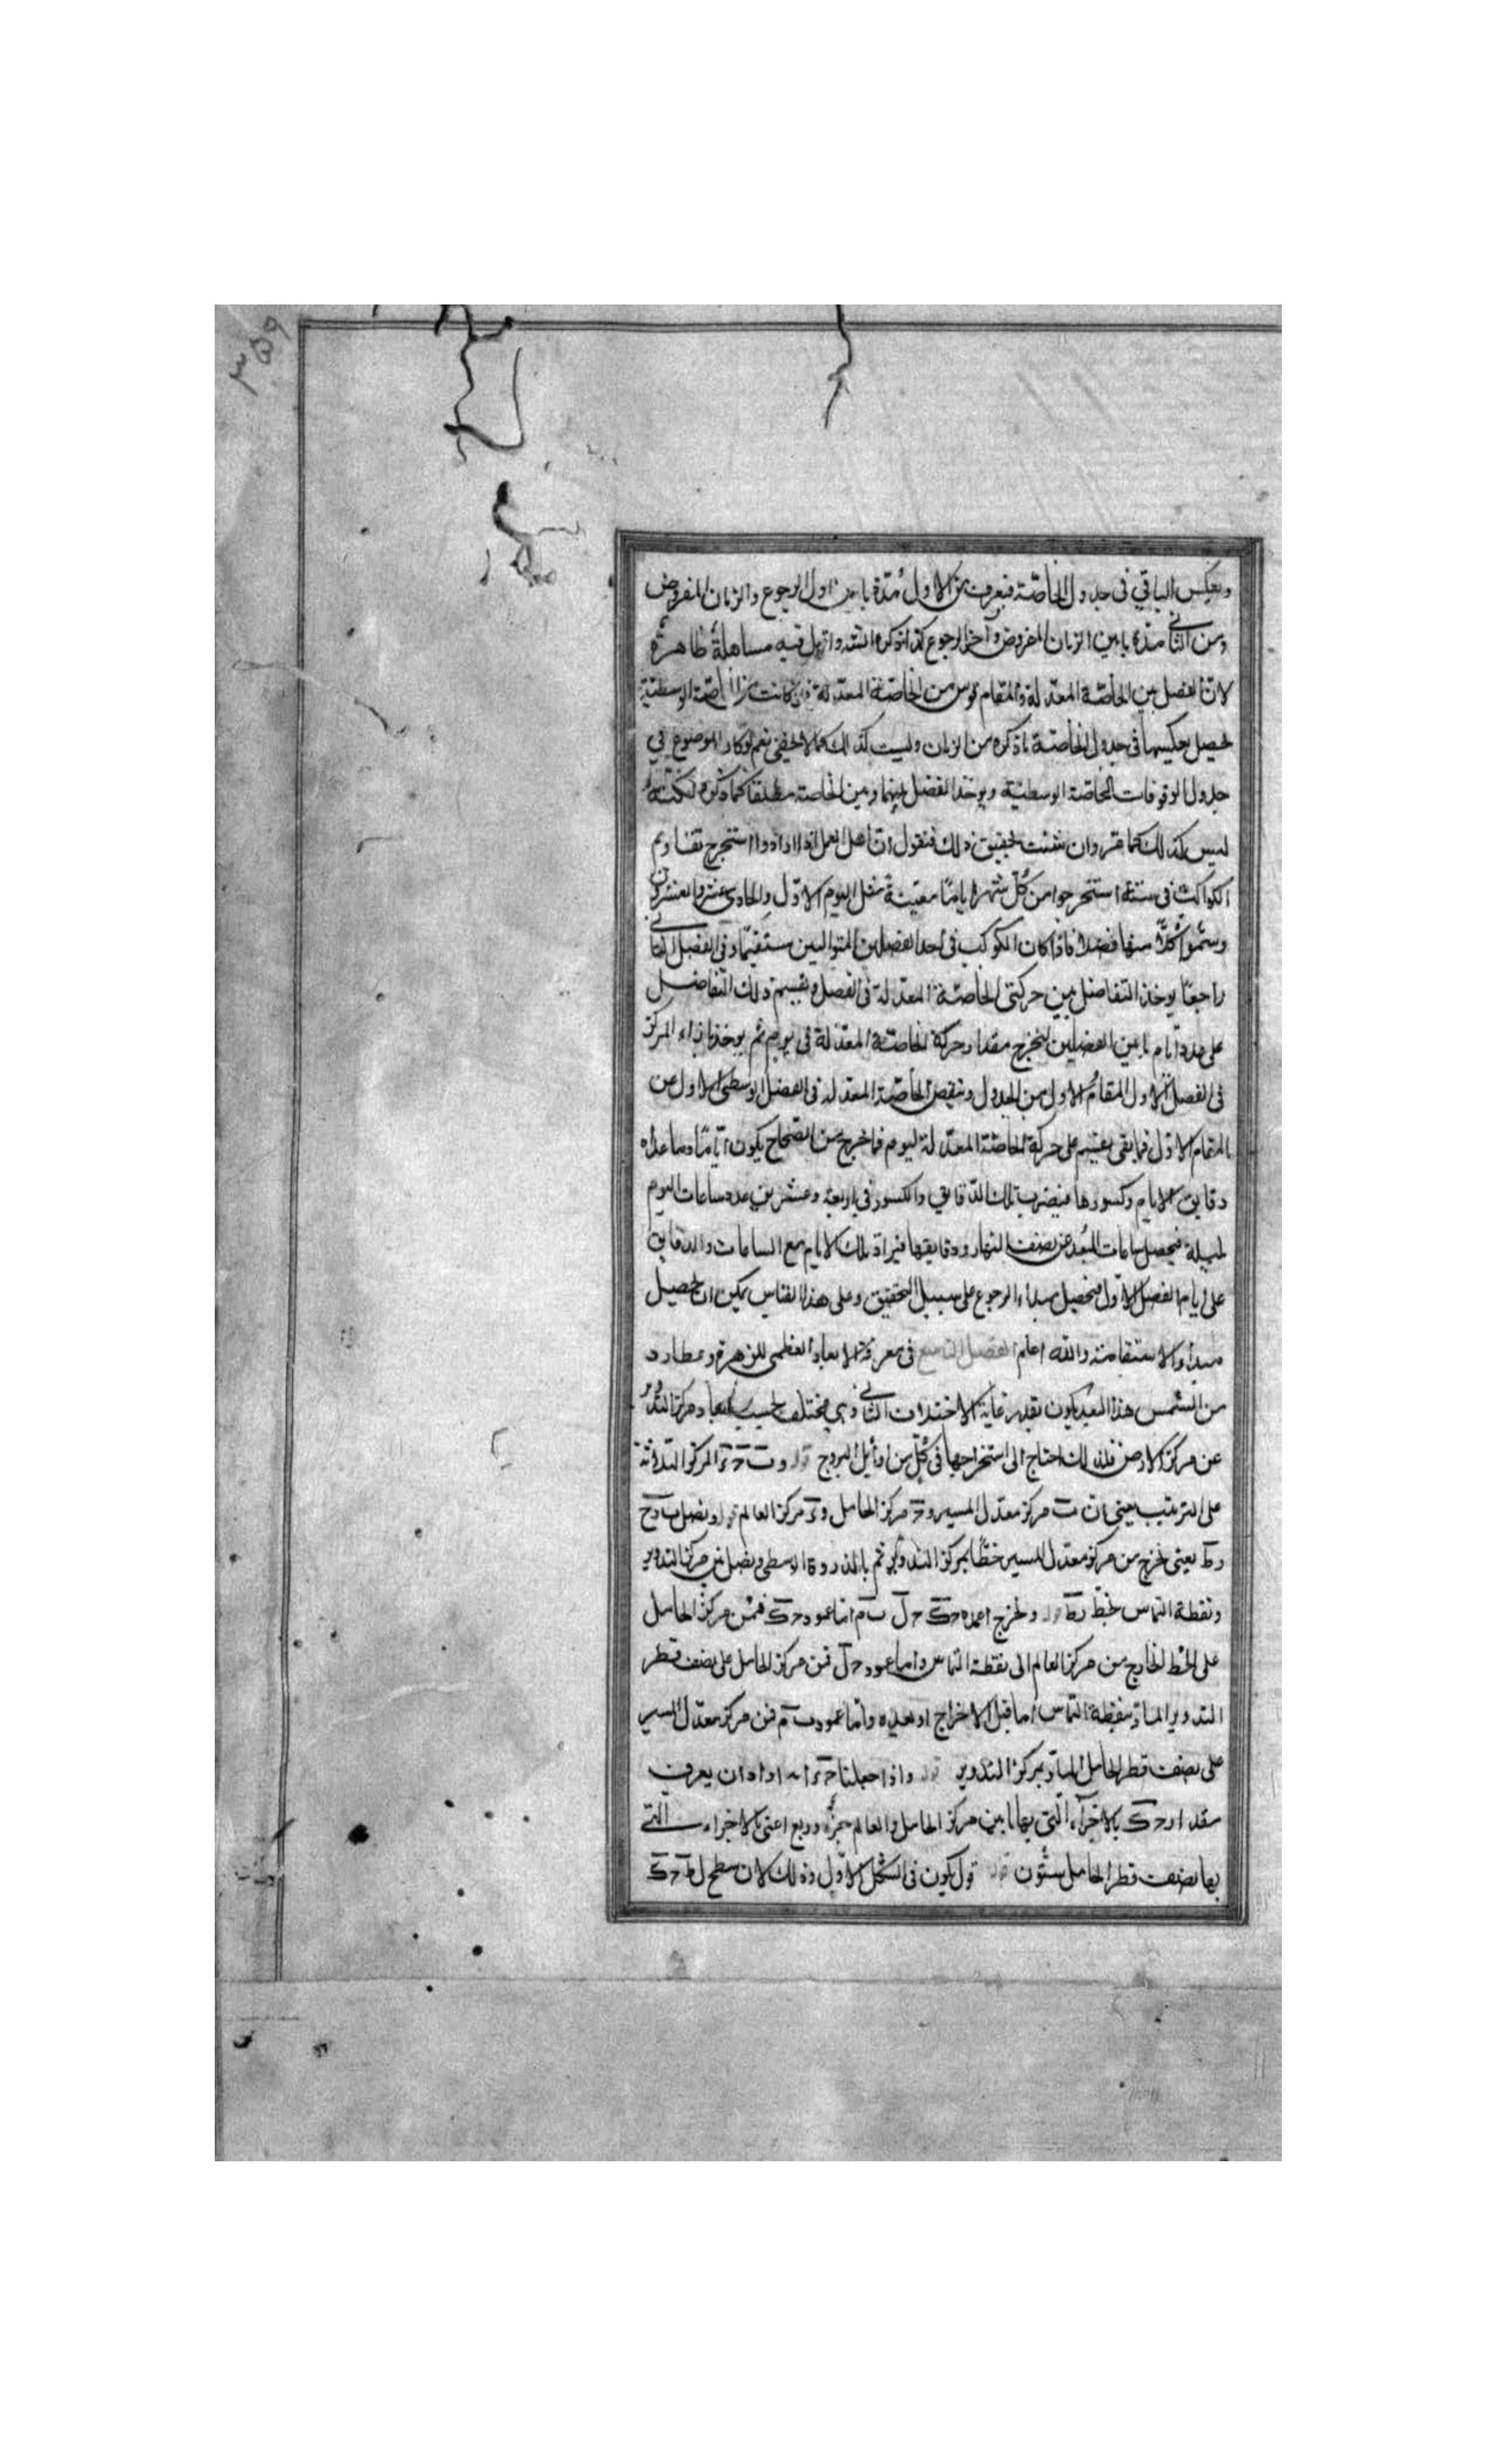 ٣٥٩
ويعكس الباقي في جدول الخاصّة فيعرف من الاول مدّة ما بين اول الرجوع والزمان المفروض
ومن الثاني مدّة ما بين الزمان المفروض وآخر الرجوع كذا ذكره السيّد وانا اقول فيه مساهلة ظاهرة
لانّ الفضل بين الخاصّة المعدّلة والمقام قوس من الخاصّة المعدّلة كانت من الخاصّة الوسطيّة
لحصل بعكسها في جدول الخاصّة ما ذكره من الزمان وليست كذلك كما لا يخفى نعم لو كان الموضوع في
جدول الوقوفات الخاصّة الوسطيّة ويوخذ الفضل بينها وبين الخاصة مطلقا كما ذكره لكنّه
ليس كذلك كما مرّ وان شئت تحقيق ذلك فنقول انّ اهل العمل اذا ارادوا استخراج تقاويم
الكواكب في سنة استخرجوا من كلّ شهر ايامًا معيّنة مثل اليوم الاوّل والحادي عشر والعشرون
وسمّوا كلًّا منها فصلا فاذا كان الكوكب في احد الفصلين المتواليين مستقيمًا وفي الفصل الثاني
راجعًا يوخذ التفاضل بين حركتي الخاصّة المعدلة في الفصل ويقسم ذلك التفاضل
على عدد ايّام ما بين الفصلين ليخرج مقدار حركة الخاصّة المعدّلة في يوم ثم يوخذ بازاء المركز
في الفصل الاول المقام الاول من الجدول وينقص الخاصّة المعدله في الفصل الاول من
المقام الاوّل فما بقى يقسم على حركة الخاصّة المعدّلة ليوم فما خرج من الصّحاح يكون ايّامًا وما عداه
دقايق الايام وكسورها فيضرب تلك الدقايق والكسور في اربعة وعشرين عدد ساعات اليوم
بليلة فيحصل ساعات البُعد عن نصف النهار ودقايقها فيزاد تلك الايام مع الساعات والدقايق
على ايام الفصل الاوّل فيحصل مبداء الرجوع على سبيل التحقيق وعلى هذا القياس يمكن ان يحصل
مبداء الاستقامة والله اعلم الفصل التاسع في معرفة الابعاد العظمى للزهرة وعطارد
من الشمس هذا البعد يكون بقدر غاية الاختلاف الثاني وهي مختلف بحسب ابعاد مركز التدوير
عن مركز الارض فلذلك احتاج الى استخراجها في كلّ من اوايل البروج قوله و ب ح ى المركز الثلاثة
على الترتيب يعني ان ب مركز معدّل المسير و ح مركز الحامل و ى مركز العالم قوله ونصل
رط يعني نخرج من مركز معدل المسير خطًّا بمركز التدوير ثم بالذروة الوسطى ونصل بين مركز التدوير
ونقطة التماس بخطّ رط قوله ونخرج اعمدة حك حل ب م امّا عمود حك فمن مركز الحامل
على الخط الخارج من مركز العالم الى نقطة التماس وامّا عمود حل فمن مركز الحامل على نصف قطر
التدوير المارّ بنقطة التماس اما قبل الاخراج او بعده وامّا عمود ب م فمن مركز معدّل المسير
على نصف قطر الحامل المارّ بمركز التدوير قوله واذا جعلنا اراد ان يعرف
مقدار حك بالاجزاء الّتي بها ما بين مركز الحامل والعالم جزء وربع اعني بالاجزاء الّتي
بها نصف قطر الحامل ستّون قوله يكون في الشكل الاوّل وذلك لان سطح ل ط ح ك